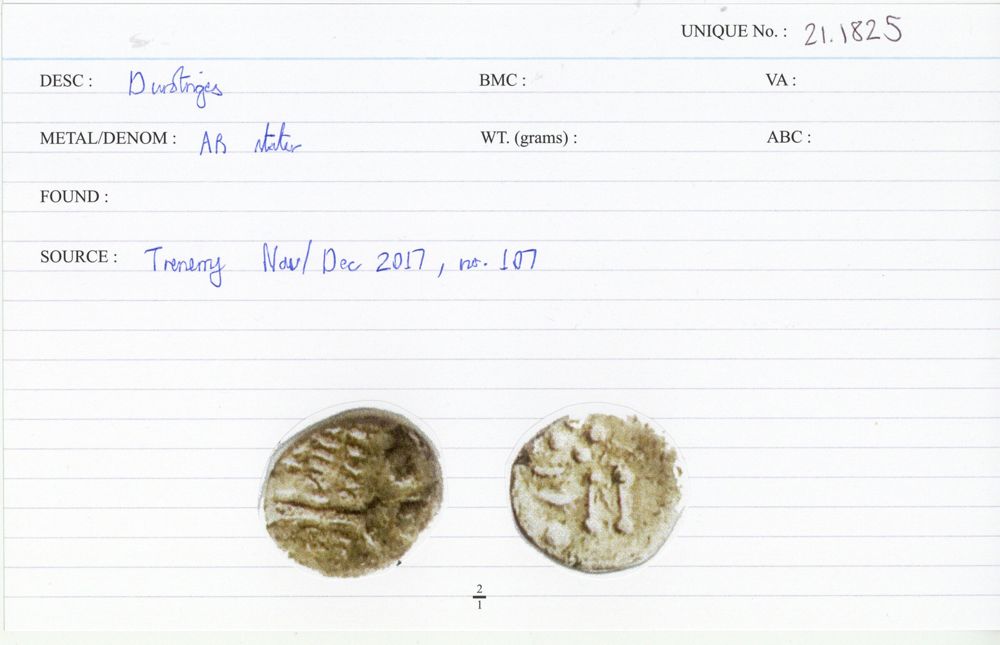 UNIQUE No. : 21.1825
DESC : Durotriges BMC : VA :
METAL/DENOM : AR stater WT. (grams) : ABC :
FOUND :
SOURCE : Trenerry Nov/Dec 2017, no. 107
2
1